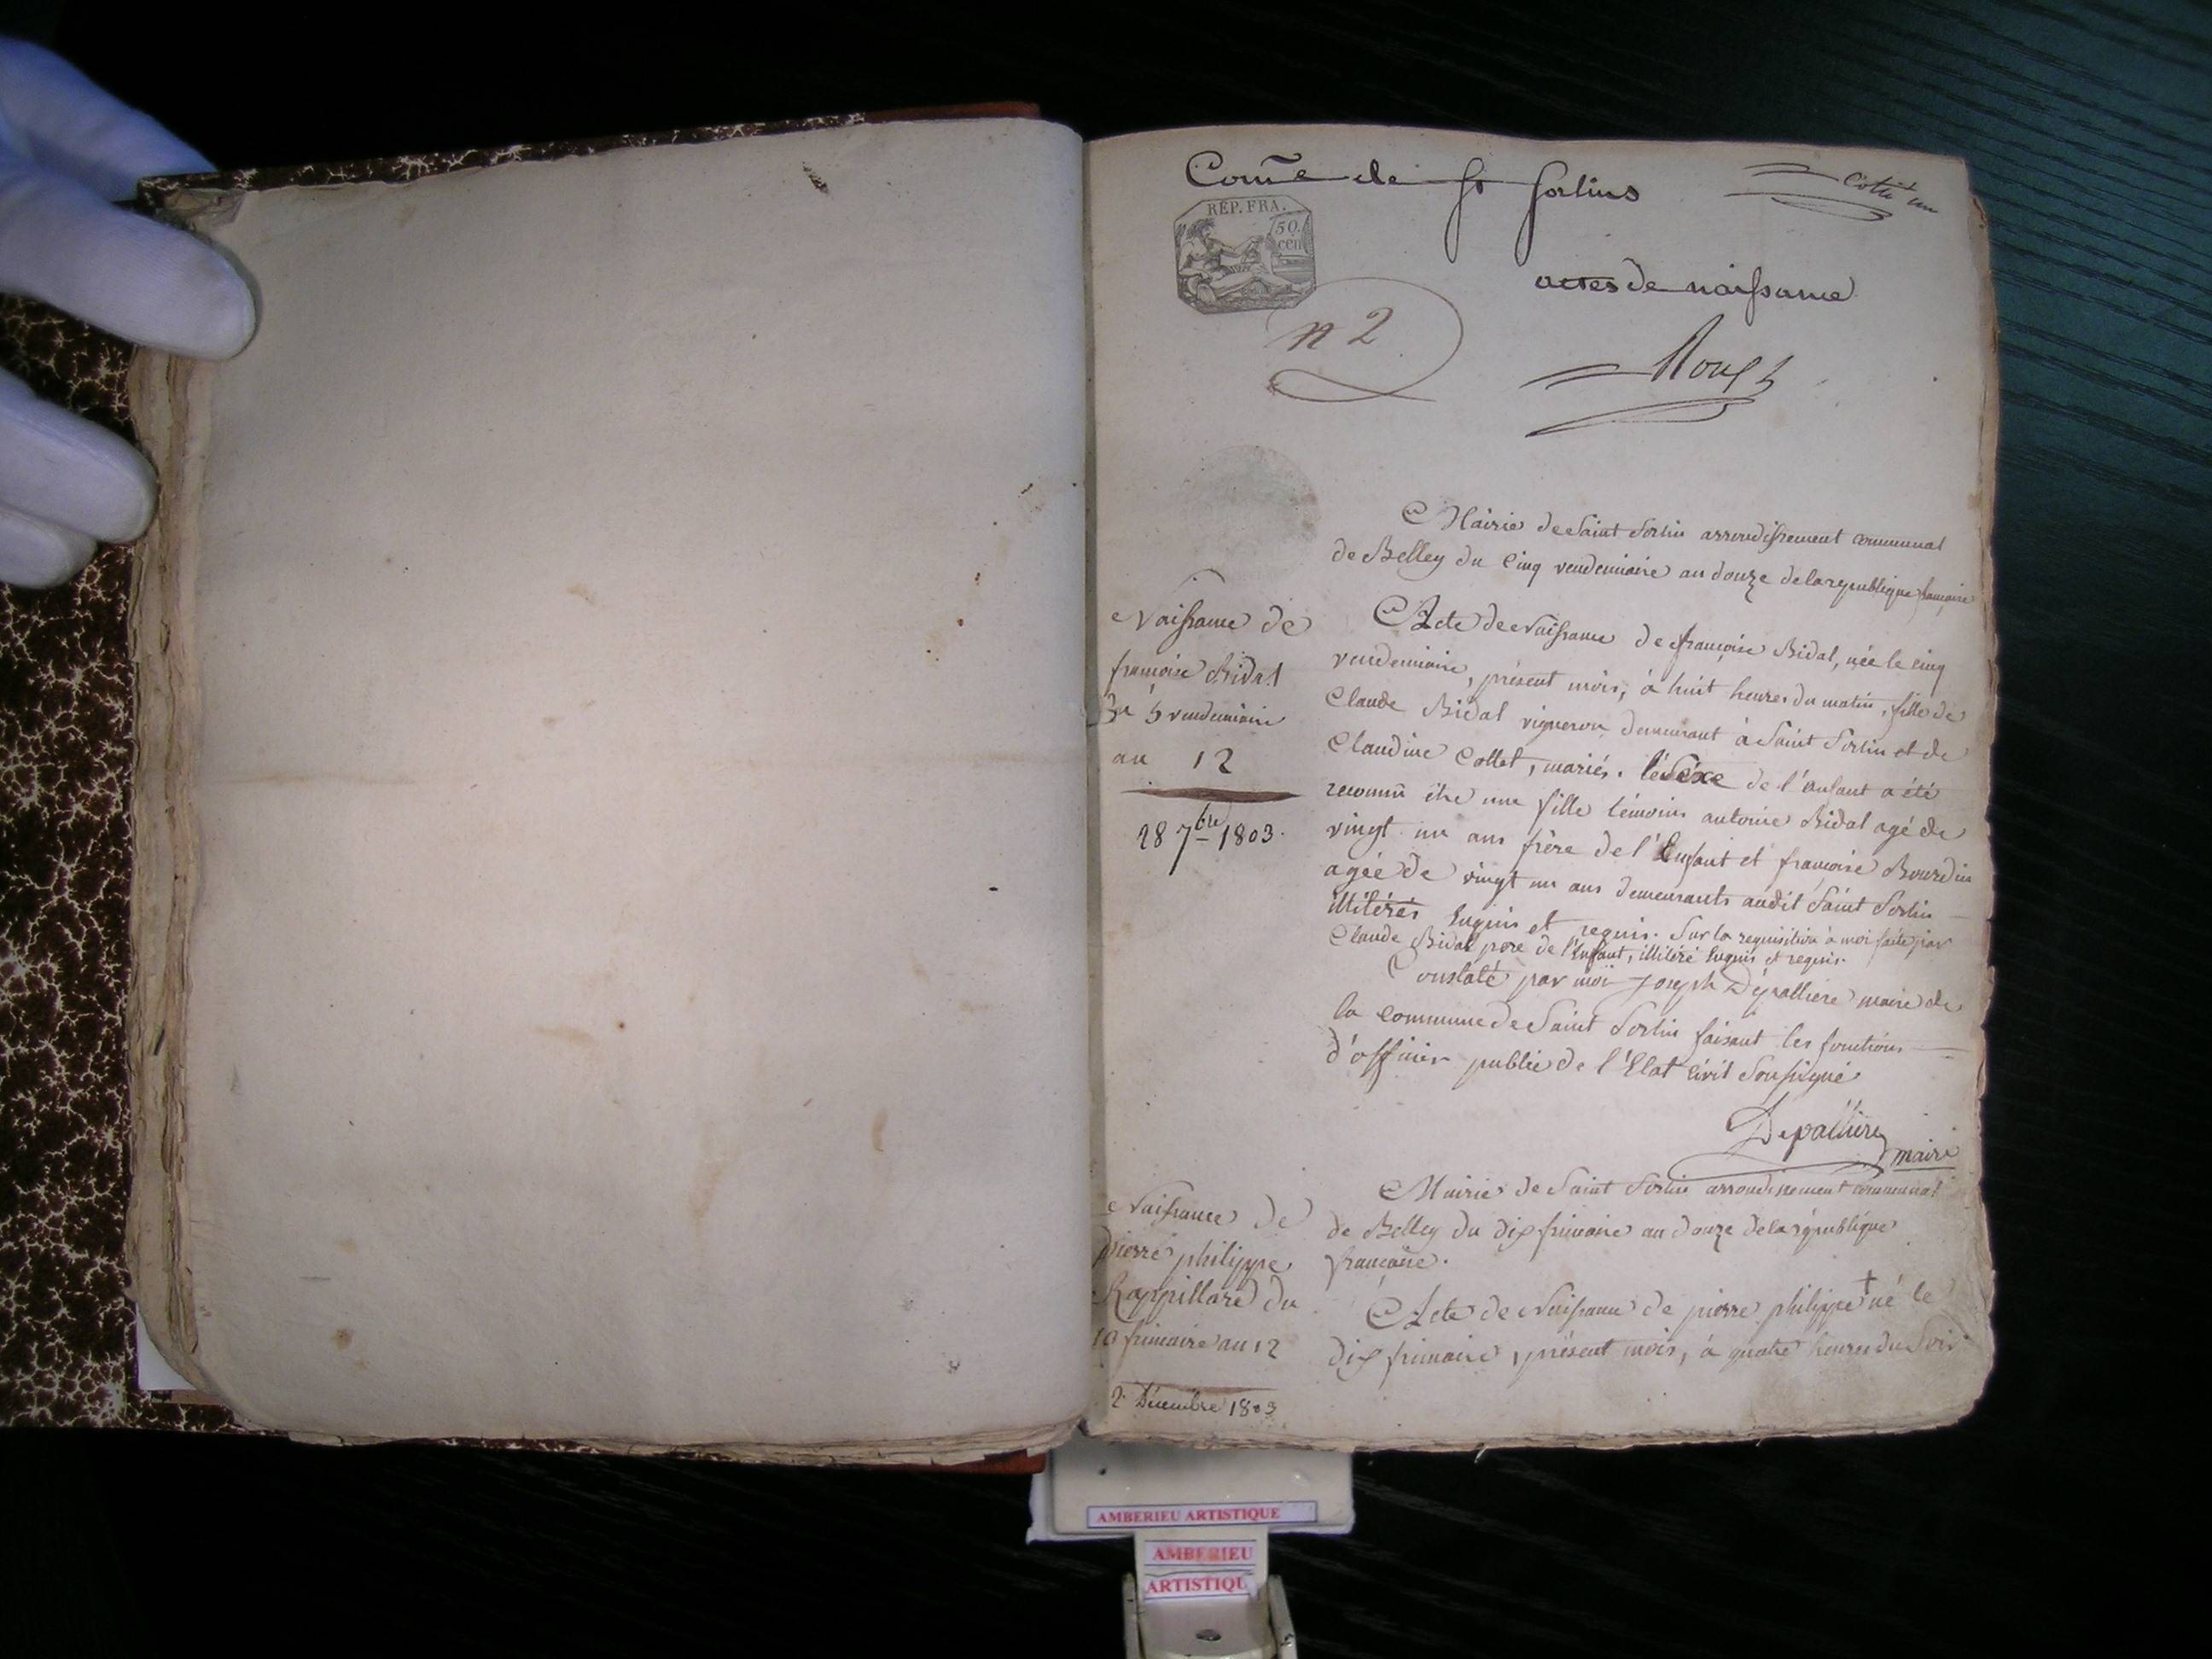 Com̃e de St Sorlins
Cotté un
REP. FRA.
50.
cen
actes de naissance
n 2
Mairie de Saint Sorlin arrondissement communal
de Belley du Cinq vendemiaire an douze de la republique francaise
Naissance de
francoise Bidal
du 5 vendemiaire
an 12
28 7bre 1803.
Acte de Naissance de francoise Bidal, née le cinq
vendemiaire, présent mois, à huit heures du matin, fille de
Claude Bidal vigneron demeurant à Saint Sorlin et de
Claudine Collet, mariés. le Sexe de l'enfant a été
reconnu être une fille témoins antoine Bidal agé de
vingt un ans frère de l'Enfant et francoise Bourdin
agée de vingt un ans demeurants audit Saint Sorlin
illitérés Enquis et requis. Sur la requisition à moi faite par
Claude Bidal pere de l'Enfant, illitéré Enquis et requis.
Constaté par moi Joseph Dépalliere maire de
la commune de Saint Sorlin faisant les fonctions
d'officier public de l'Etat Civil Soussigné
Depalliere
maire
Mairie de Saint Sorlin arrondissement communal
de Belley du dix frimaire an douze de la république
francaise.
Naissance de
pierre philippe
Rappillard du
10 frimaire an 12
2 Décembre 1803
Acte de Naissance de pierre philippe † né le
dix frimaire, présent mois, à quatre heures du Soir
AMBERIEU ARTISTIQUE
AMBERIEU
ARTISTIQU